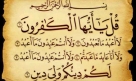 بِسْمِ ٱللَّهِ ٱلرَّحْمَٰنِ ٱلرَّحِيمِ
قُلْ يَٰٓأَيُّهَا ٱلْكَٰفِرُونَ
لَآ أَعْبُدُ مَا تَعْبُدُونَ وَلَآ أَنتُمْ عَٰبِدُونَ مَآ أَعْبُدُ
وَلَآ أَنَا۠ عَابِدٌ مَّا عَبَدتُّمْ وَلَآ أَنتُمْ عَٰبِدُونَ مَآ أَعْبُدُ
لَكُمْ دِينُكُمْ وَلِىَ دِينِ